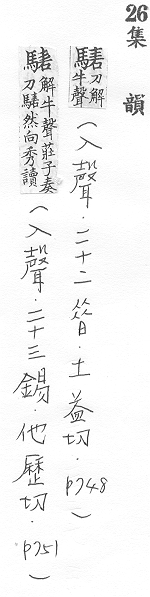 26集 韻
騞 刀解牛聲 (入聲.二十二㫺.土益切.p748)
騞 解牛聲莊子奏刀騞然向秀讀 (入聲.二十三錫.他歷切.p751)